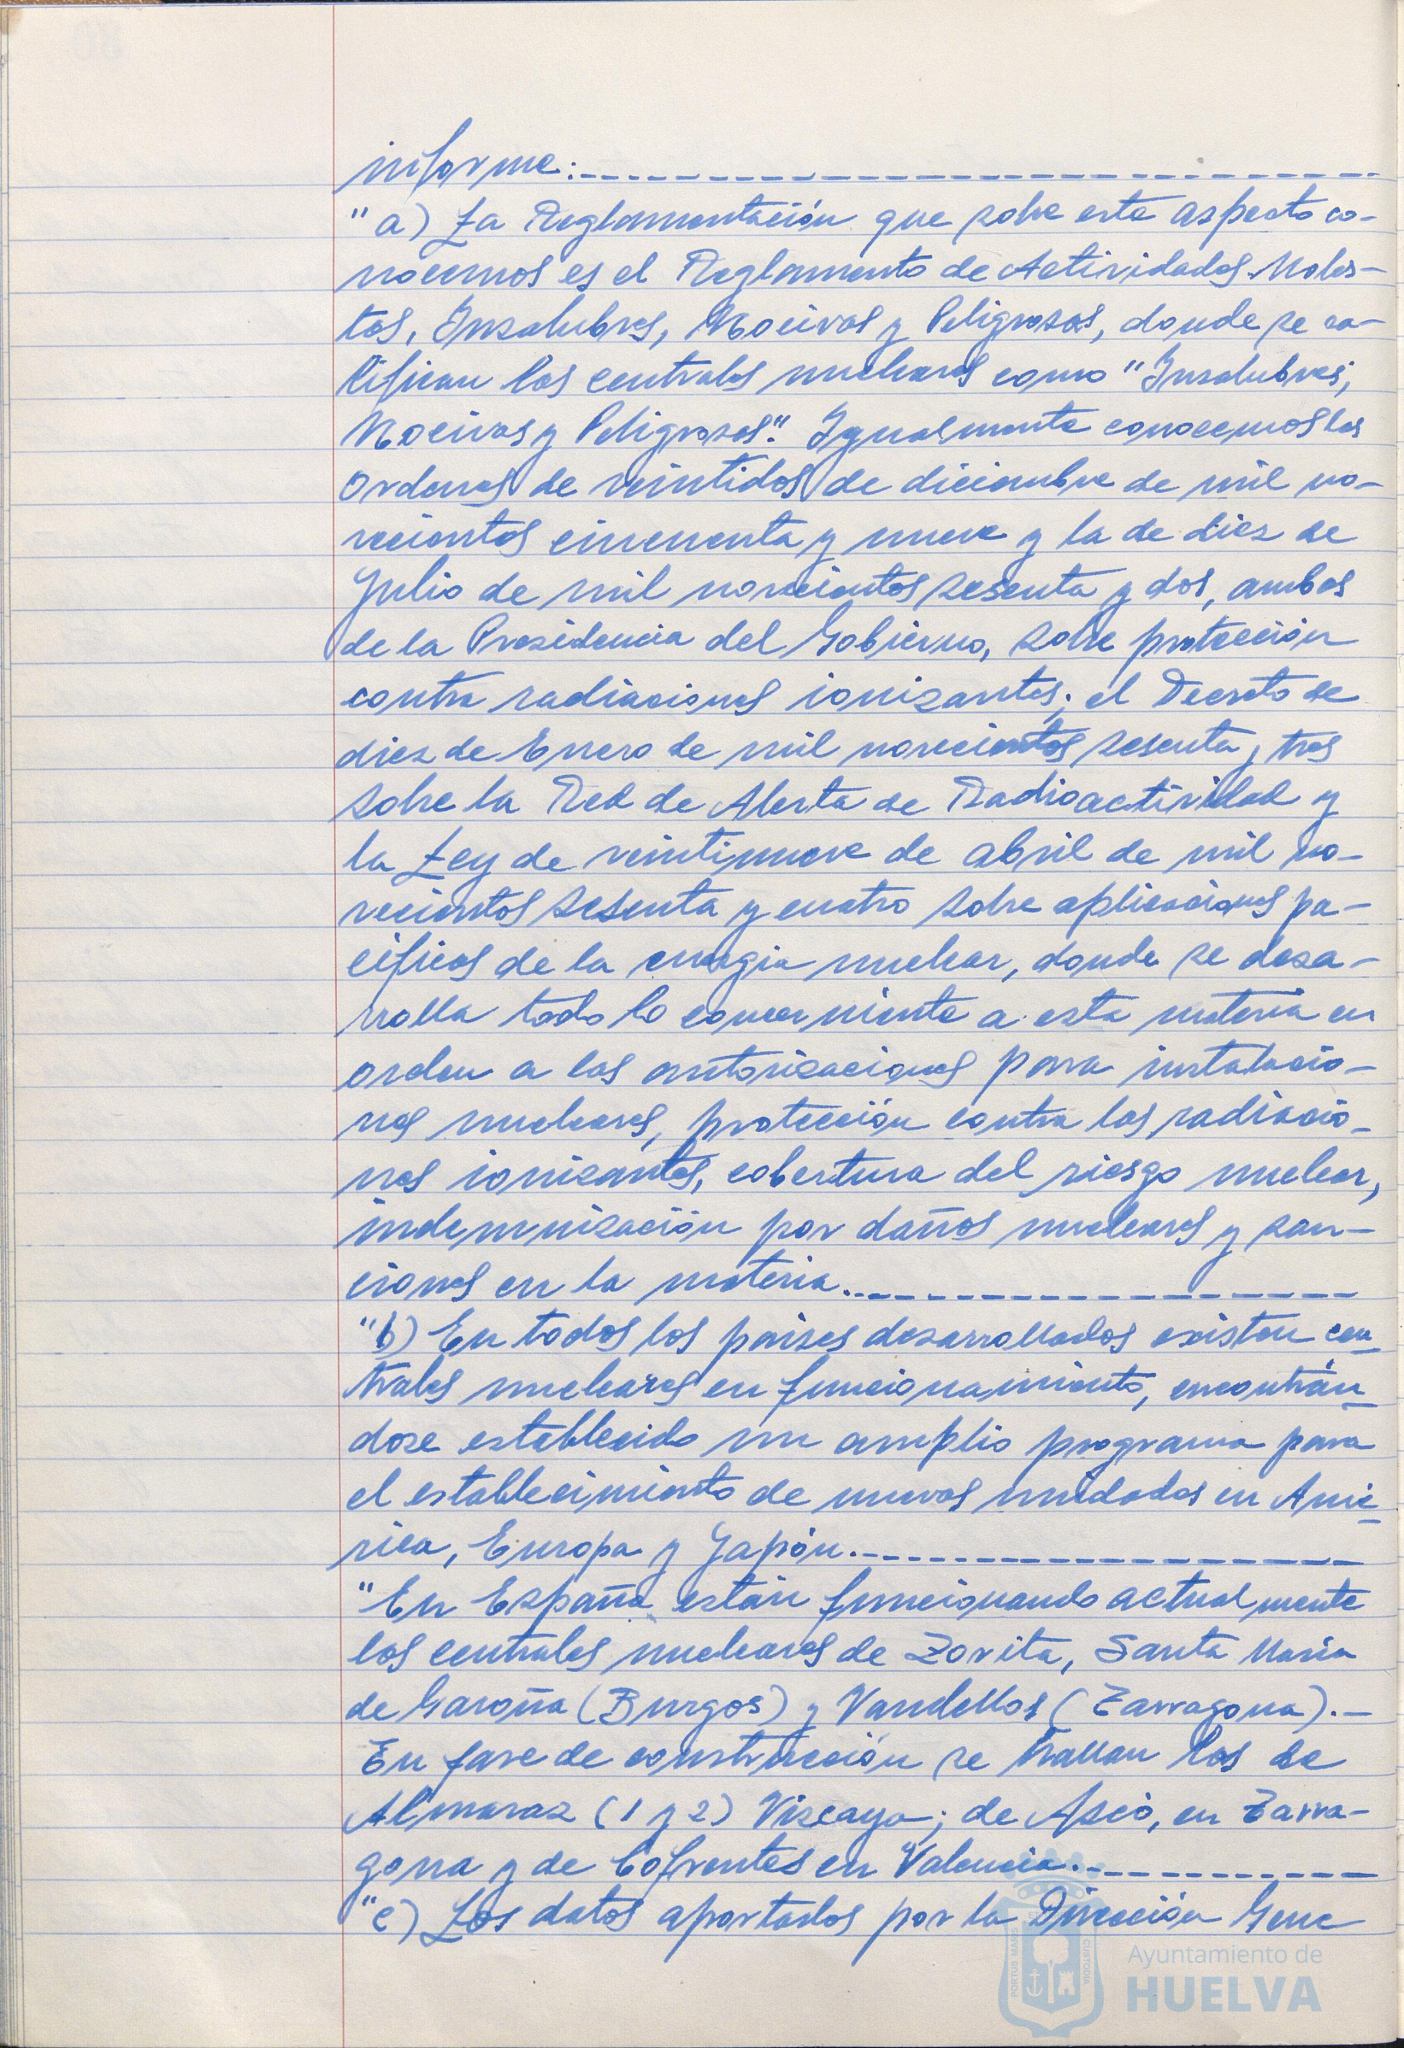 informe:
"a) La Reglamentación que sobre este aspecto co-
nocemos es el Reglamento de Actividades Moles-
tas, Insalubres, Nocivas y Peligrosas, donde se ca-
lifican las centrales nucleares como "Insalubres,
Nocivas y Peligrosas". Igualmente conocemos las
Ordenes de veintidos de diciembre de mil no-
vecientos cincuenta y nueve y la de diez de
Julio de mil novecientos sesenta y dos, ambas
de la Presidencia del Gobierno, sobre protección
contra radiaciones ionizantes; el Decreto de
diez de Enero de mil novecientos sesenta y tres
sobre la Red de Alerta de Radioactividad y
la Ley de veintinueve de abril de mil no-
vecientos sesenta y cuatro sobre aplicaciones pa-
cificas de la energia nuclear, donde se desa-
rrolla todo lo concerniente a esta materia en
orden a las autorizaciones para instalacio-
nes nucleares, protección contra las radiacio-
nes ionizantes, cobertura del riesgo nuclear,
indemnización por daños nucleares y san-
ciones en la materia.
"b) En todos los paises desarrollados existen cen
trales nucleares en funcionamiento, encontrán
dose establecido un amplio programa para
el establecimiento de nuevas unidades en Amé
rica, Europa y Japón.
"En España están funcionando actualmente
las centrales nucleares de Zorita, Santa Maria
de Garoña (Burgos) y Vandellos (Tarragona).-
En fase de construcción se hallan las de
Almaraz (1 y 2) Vizcaya; de Ascó, en Tarra-
gona y de Cofrentes en Valencia.
"c) Los datos aportados por la Dirección Gene
PORTUS MARIS
CUSTODIA
Ayuntamiento de
HUELVA